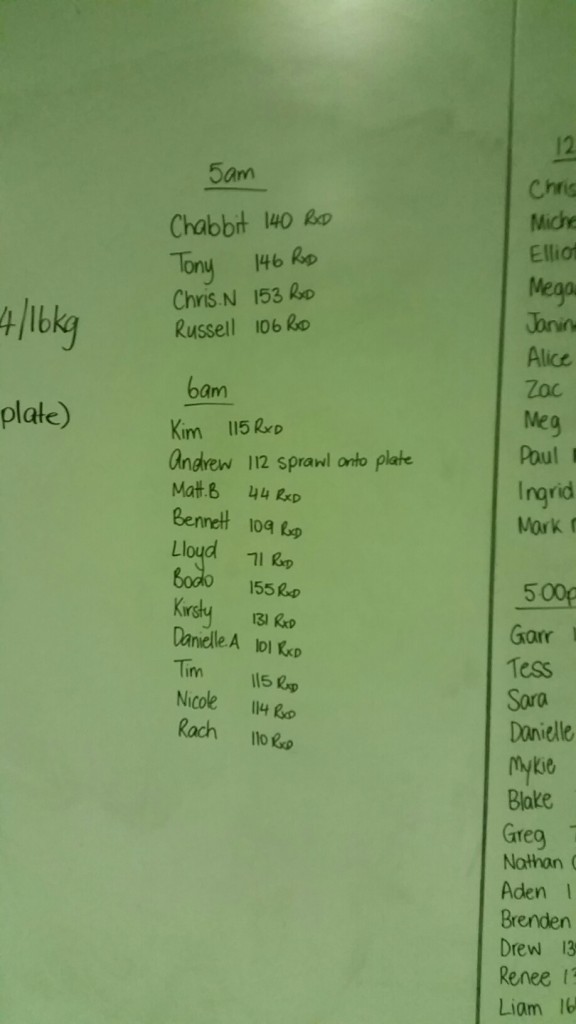 4/16kg
plate)
5am
Chabbit 140 RxD
Tony 146 RxD
Chris.N 153 RxD
Russell 106 RxD
6am
Kim 115 RxD
Andrew 112 sprawl onto plate
Matt.B 44 RxD
Bennett 109 RxD
Lloyd 71 RxD
Bodo 155 RxD
Kirsty 131 RxD
Danielle.A 101 RxD
Tim 115 RxD
Nicole 114 RxD
Rach 110 RxD
12
Chris
Miche
Elliot
Mega
Janin
Alice
Zac
Meg
Paul
Ingrid
Mark
5:00p
Garr
Tess
Sara
Danielle
Mykie
Blake
Greg
Nathan
Aden 1
Brenden
Drew 13
Renee 13
Liam 16